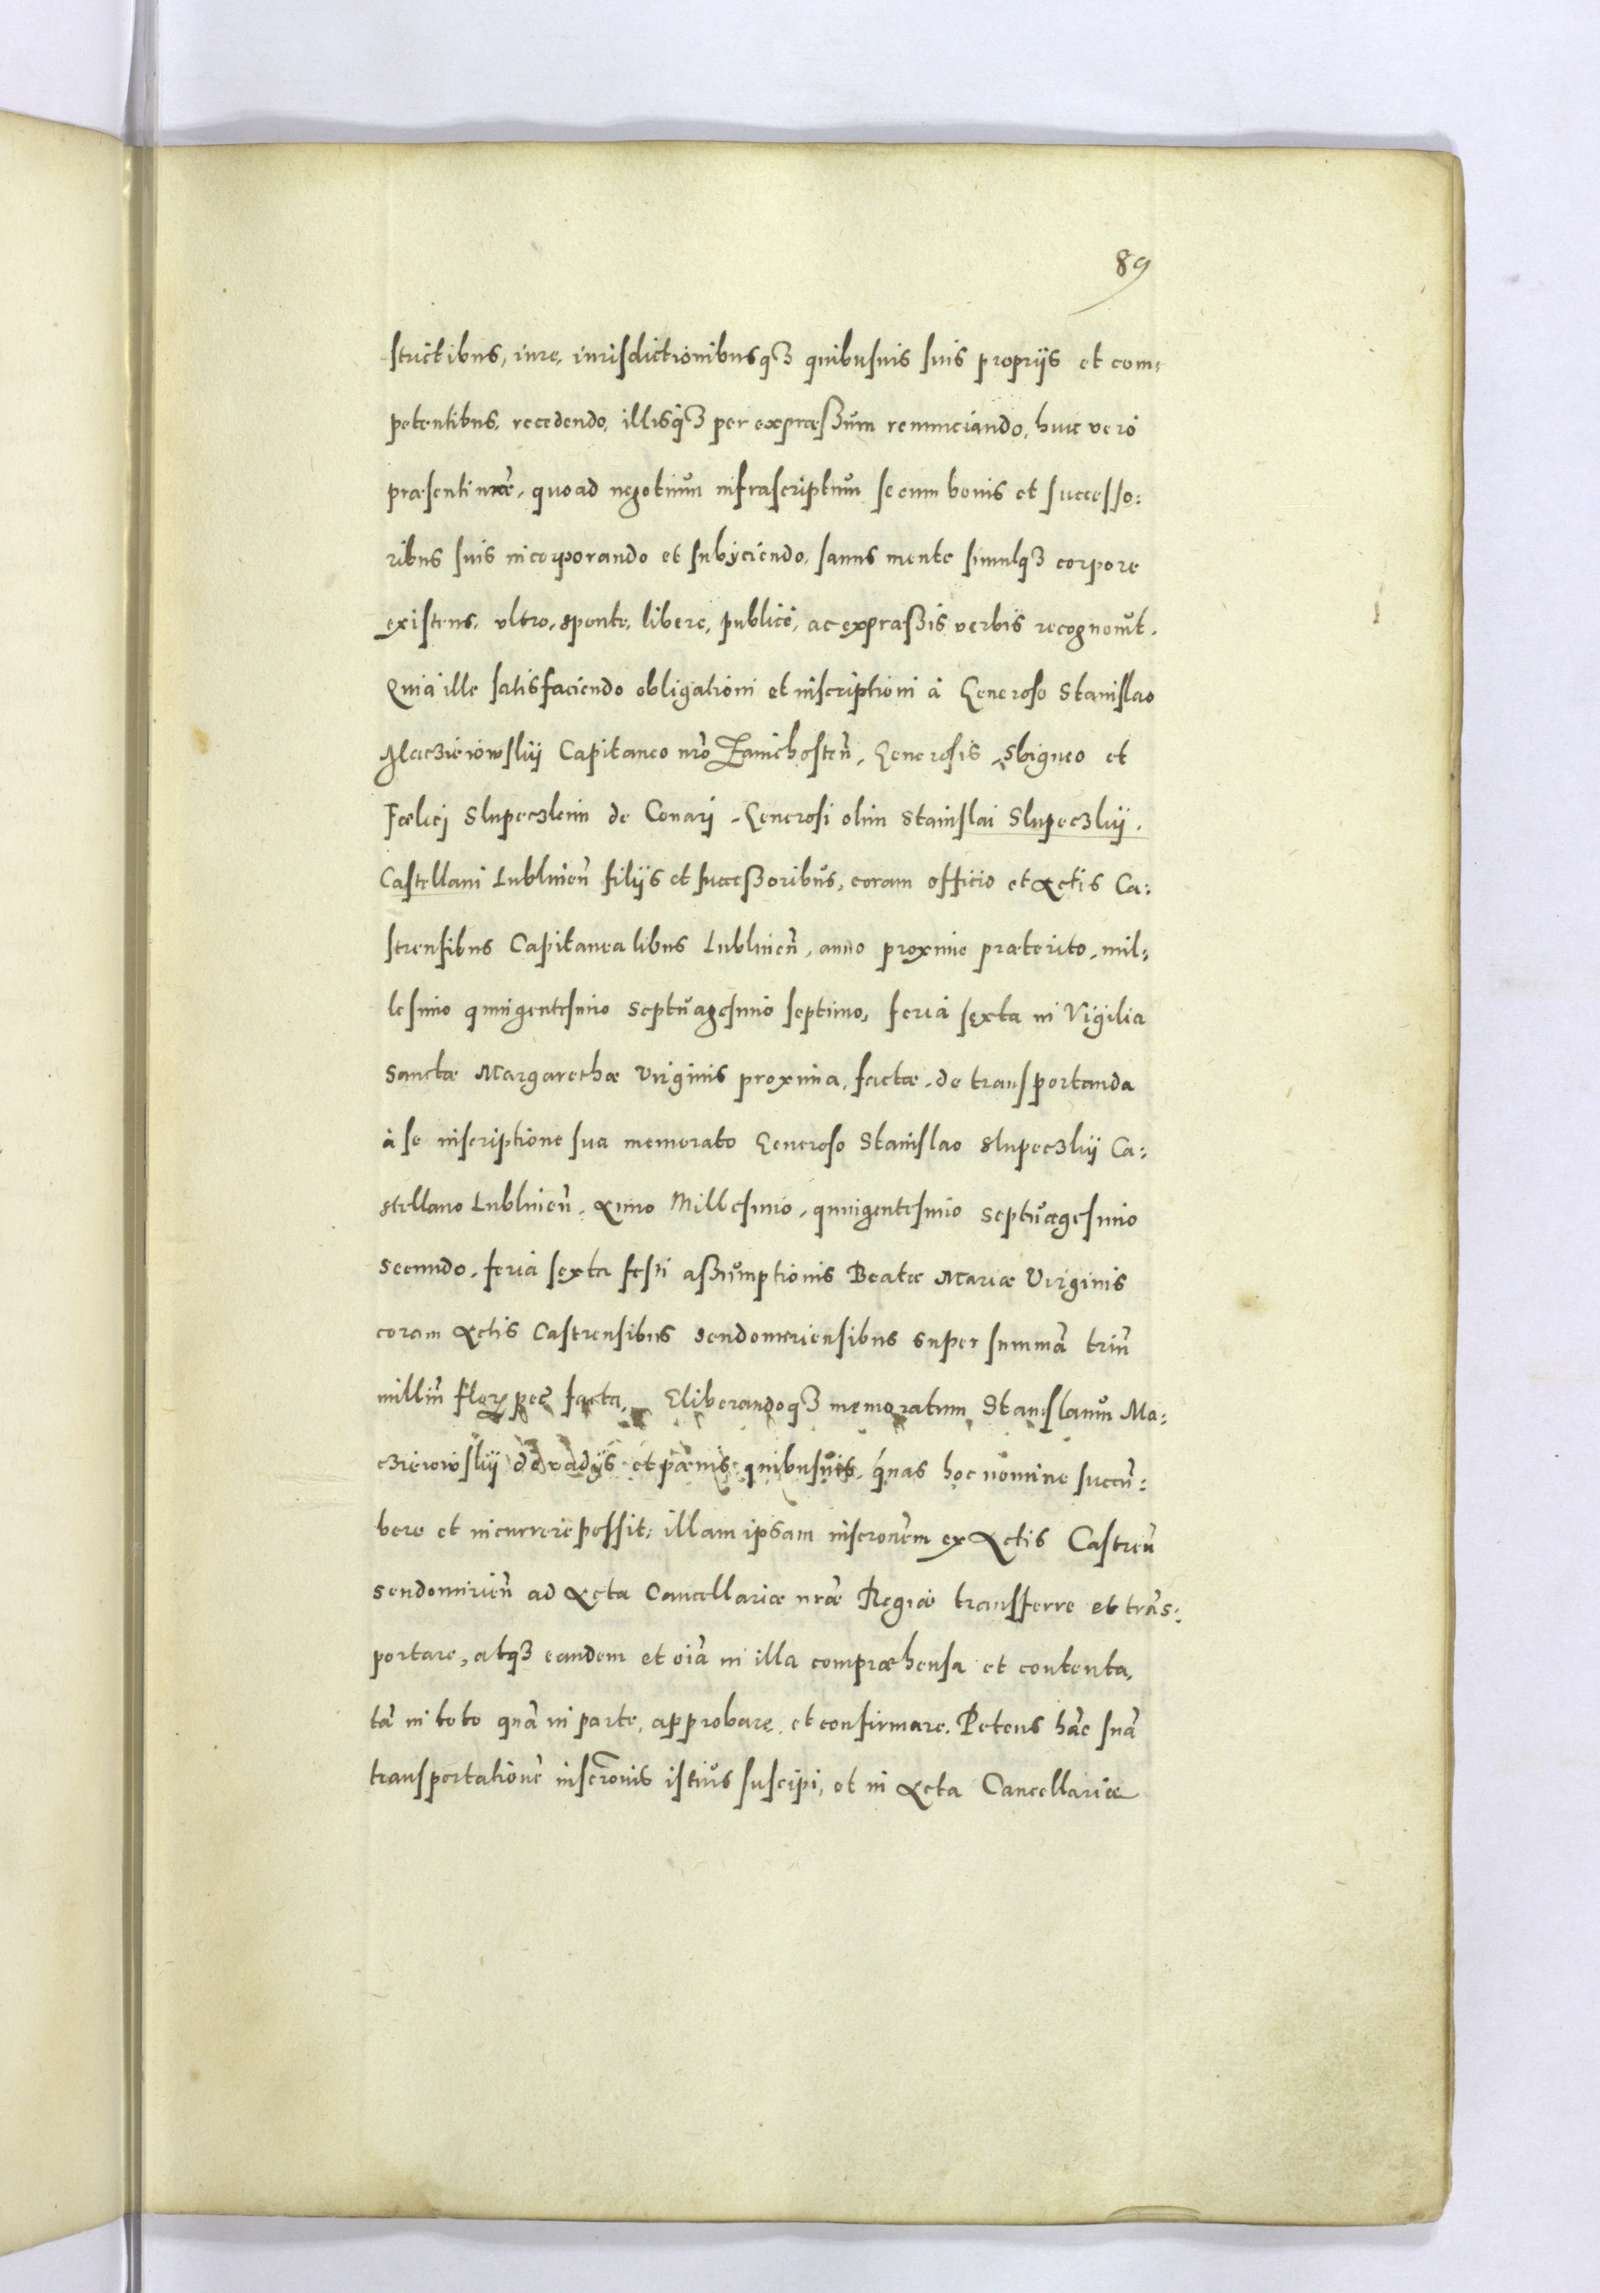 89
strictibus, iure, iurisdictionibusq3 quibusuis suis proprijs et com=
petentibus, recedendo, illisq3 per expræßum renunciando, huic vero
præsenti nræ, quoad negotium infrascriptum se cum bonis et successo=
ribus suis incorporando et subijciendo, sanus mente simulq3 corpore
existens, vltro, sponte, libere, publicè, ac expræßis verbis recognouit.
Quia ille satisfaciendo obligationi et inscriptioni à Generoso Stanislao
Macziéiowskij Capitaneo nrõ Zawichosteñ, Generosis Sbigneo et
Fœlici Slupeczkim de Conarj, Generosi olim Stanislai Slupeczkij,
Castellani Lublineñ filijs et succeßoribus, coram officio et Actis Ca=
strensibus Capitanealibus Lublineñ, anno proxime præterito, mil=
lesimo quingentesimo septuagesimo septimo, feria sexta in Vigilia
Sanctæ Margarethæ Virginis proxima, factæ, de transportanda
à se inscriptione sua memorato Generoso Stanislao Slupeczkij Ca=
stellano Lublineñ, Anno Millesimo, quingentesimo septuagesimo
secundo, feria sexta festi aßumptionis Beatæ Mariæ Virginis
coram Actis Castrensibus Sendomiriensibus super summã triũ
milliũ flor pec̃ facta, Eliberandoq3 memoratum Stanislaum Ma=
czieiowskij de vadijs et pænis quibusuis, quas hoc nomine succũ=
bere et incurrere possit, illam ipsam inscronem̃ ex Actis Castreñ
Sendomirieñ ad Acta Cancellariæ nræ̃ Regiæ transferre et trãs=
portare, atq3 eandem et oĩa in illa compræhensa et contenta,
tã in toto quã in parte, approbare, et confirmare. Petens hãc suã
transportationẽ inscronis̃ istius suscipi, et in Acta Cancellariæ